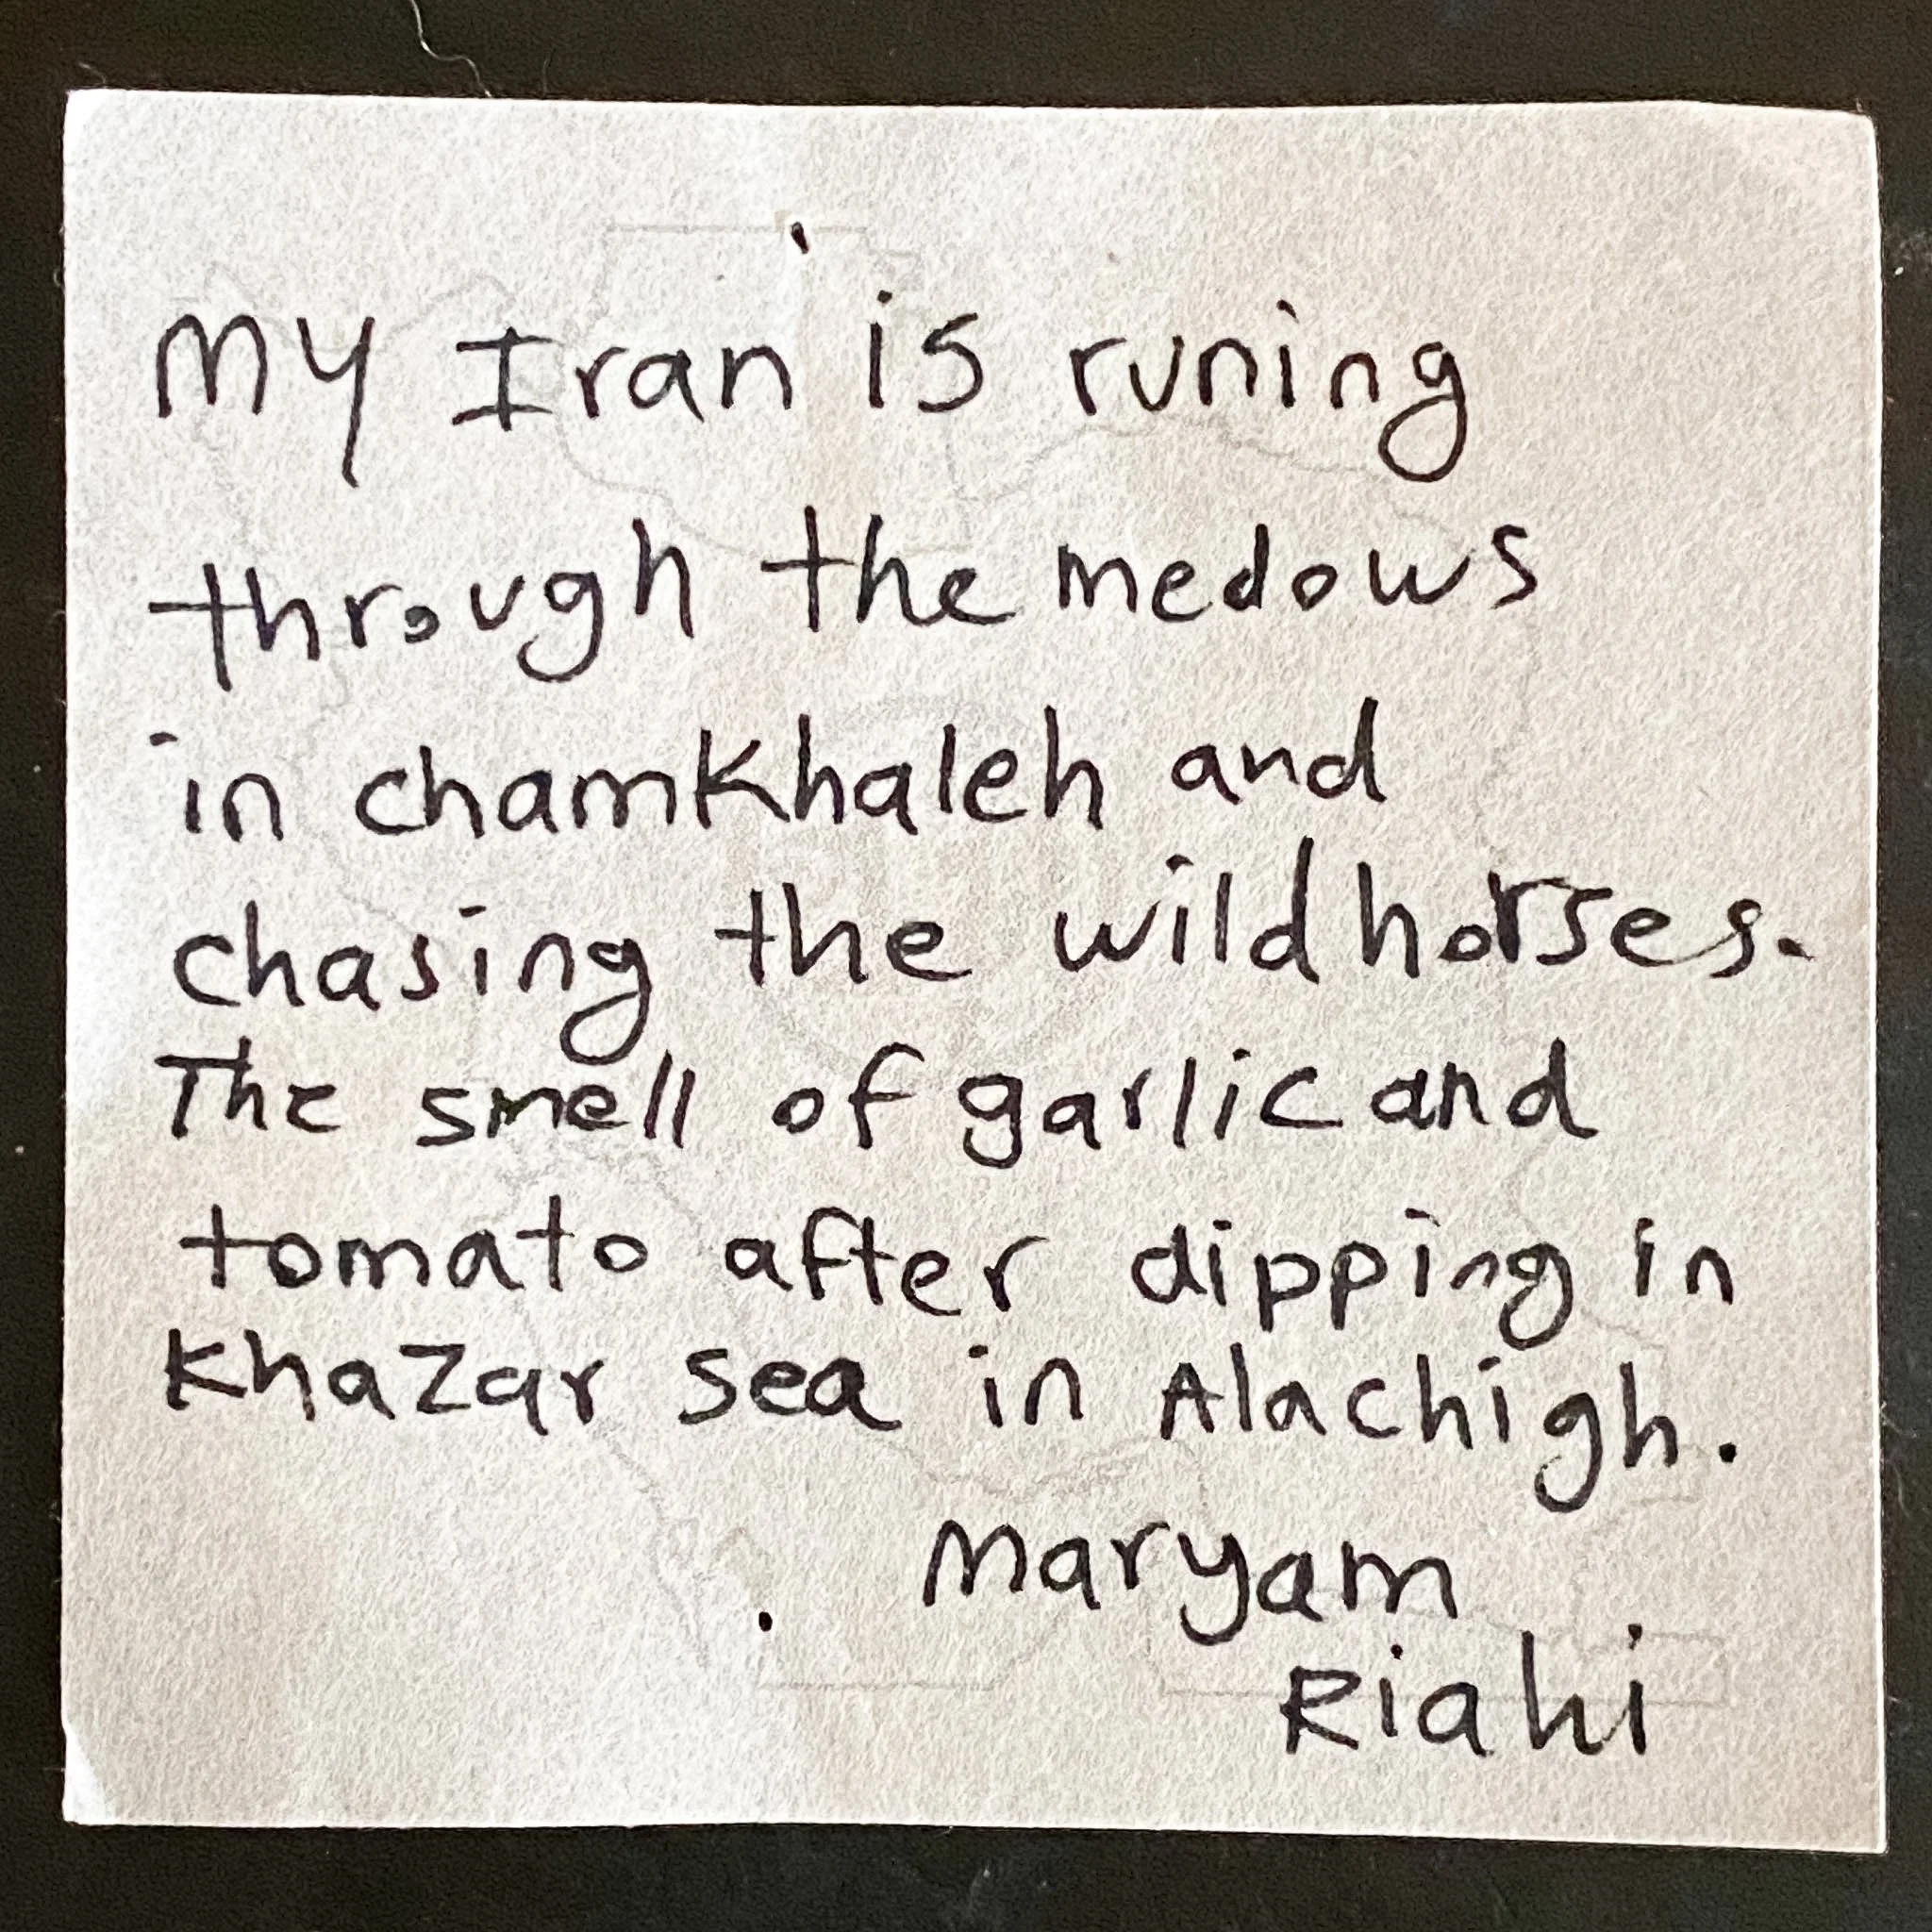 My Iran is runing
through the medows
in chamkhaleh and
chasing the wild horses.
The smell of garlic and
tomato after dipping in
Khazar sea in Alachigh.
Maryam
Riahi